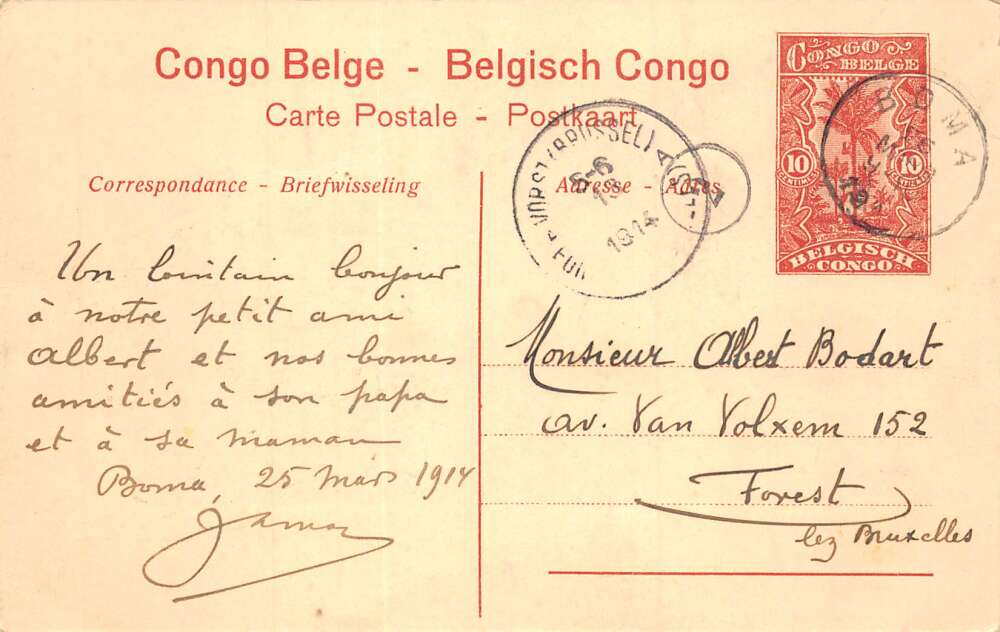 Congo Belge - Belgisch Congo
Carte Postale - Postkaart
Correspondance - Briefwisseling
Adresse - Adres
CONGO BELGE
10 CENTIMES
10 CENTIEMEN
BELGISCH CONGO
BOMA
VORST (BRUSSEL)
1914
Un lointain bonjour
à notre petit ami
Albert et nos bonnes
amitiés à son papa
et à sa maman
Boma, 25 Mars 1914
Monsieur Albert Bodart
av. Van Volxem 152
Forest
lez Bruxelles